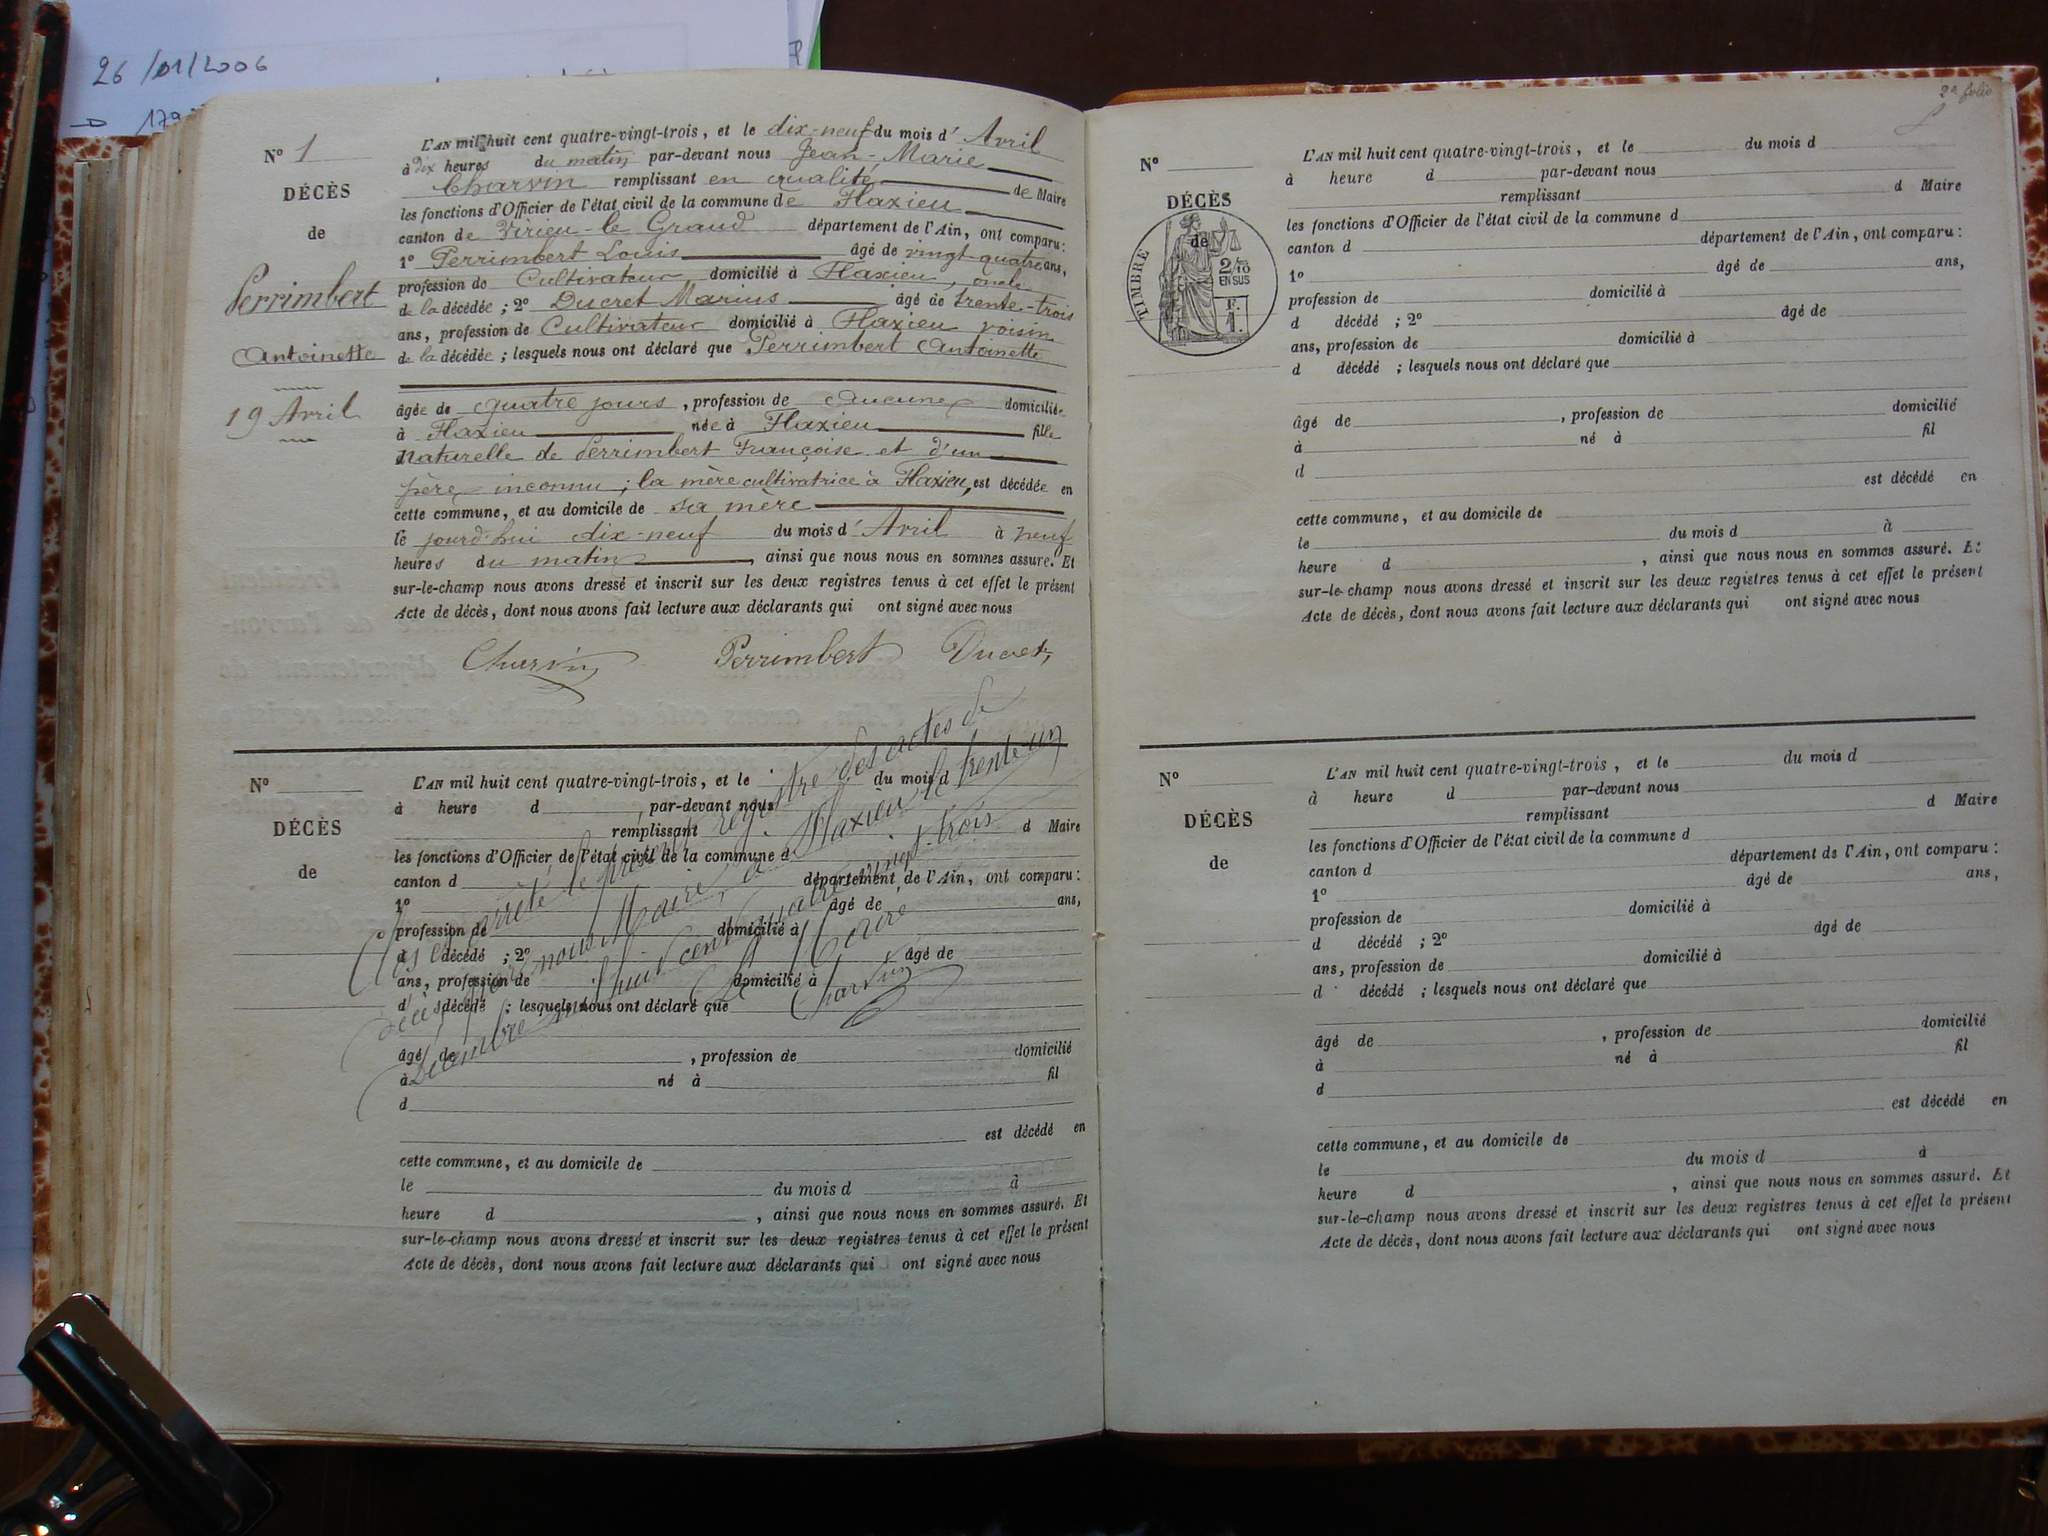 26/01/2006
N° 1
DÉCÈS
de
Perrimbert
Antoinette
19 Avril
L'AN mil huit cent quatre-vingt-trois, et le dix-neuf du mois d'Avril
à dix heures du matin par-devant nous Jean-Marie
Charvin remplissant en qualité de Maire
les fonctions d'Officier de l'état civil de la commune de Flaxieu
canton de Virieu-le Grand département de l'Ain, ont comparu:
1° Perrimbert Louis âgé de vingt-quatre ans,
profession de Cultivateur domicilié à Flaxieu, oncle
de la décédée; 2° Ducret Marius âgé de trente-trois
ans, profession de Cultivateur domicilié à Flaxieu voisin
de la décédée; lesquels nous ont déclaré que Perrimbert Antoinette
âgée de quatre jours, profession de Aucune domiciliée
à Flaxieu née à Flaxieu fille
Naturelle de Perrimbert Françoise et d'un
père inconnu; la mère cultivatrice à Flaxieu, est décédée en
cette commune, et au domicile de sa mère
le jourd'hui dix-neuf du mois d'Avril à neuf
heures du matin, ainsi que nous nous en sommes assuré. Et
sur-le-champ nous avons dressé et inscrit sur les deux registres tenus à cet effet le présent
Acte de décès, dont nous avons fait lecture aux déclarants qui ont signé avec nous
Charvin Perrimbert Ducret
N°
DÉCÈS
de
L'AN mil huit cent quatre-vingt-trois, et le du mois d
à heure d , par-devant nous
remplissant d Maire
les fonctions d'Officier de l'état civil de la commune d
canton d département de l'Ain, ont comparu:
1° âgé de ans,
profession de domicilié à
d décédé ; 2° âgé de
ans, profession de domicilié à
d décédé ; lesquels nous ont déclaré que
âgé de , profession de domicilié
à né à fil
d
est décédé en
cette commune, et au domicile de
le du mois d à
heure d , ainsi que nous nous en sommes assuré. Et
sur-le-champ nous avons dressé et inscrit sur les deux registres tenus à cet effet le présent
Acte de décès, dont nous avons fait lecture aux déclarants qui ont signé avec nous
Clos et arrêté le présent registre des actes de
décès par nous Maire, à Flaxieu le trente-un
Décembre mil huit cent quatre-vingt-trois
Le Maire
Charvin
2e folio
N°
DÉCÈS
de
TIMBRE
2/10
EN SUS
L'AN mil huit cent quatre-vingt-trois, et le du mois d
à heure d par-devant nous
remplissant d Maire
les fonctions d'Officier de l'état civil de la commune d
canton d département de l'Ain, ont comparu:
1° âgé de ans,
profession de domicilié à
d décédé ; 2° âgé de
ans, profession de domicilié à
d décédé ; lesquels nous ont déclaré que
âgé de , profession de domicilié
à né à fil
d
est décédé en
cette commune, et au domicile de
le du mois d à
heure d , ainsi que nous nous en sommes assuré. Et
sur-le-champ nous avons dressé et inscrit sur les deux registres tenus à cet effet le présent
Acte de décès, dont nous avons fait lecture aux déclarants qui ont signé avec nous
N°
DÉCÈS
de
L'AN mil huit cent quatre-vingt-trois, et le du mois d
à heure d par-devant nous
remplissant d Maire
les fonctions d'Officier de l'état civil de la commune d
canton d département de l'Ain, ont comparu:
1° âgé de ans,
profession de domicilié à
d décédé ; 2° âgé de
ans, profession de domicilié à
d décédé ; lesquels nous ont déclaré que
âgé de , profession de domicilié
à né à fil
d
est décédé en
cette commune, et au domicile de
le du mois d à
heure d , ainsi que nous nous en sommes assuré. Et
sur-le-champ nous avons dressé et inscrit sur les deux registres tenus à cet effet le présent
Acte de décès, dont nous avons fait lecture aux déclarants qui ont signé avec nous